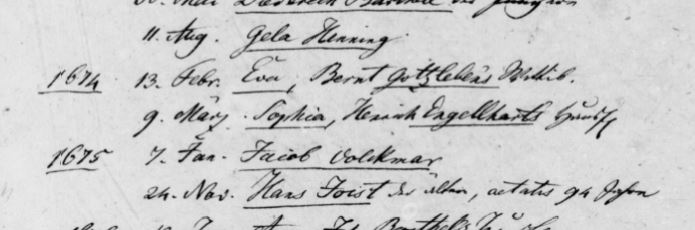 11. Aug. Gela Henning.
1674 13. Febr. Eva, Bernt Gotzlebens
9. März. Sophia, Henrich Engellharts
1675 7. Jan. Jacob Volckmar
24. Nov. Hans Joist der älter, aetatis 94 Jahr